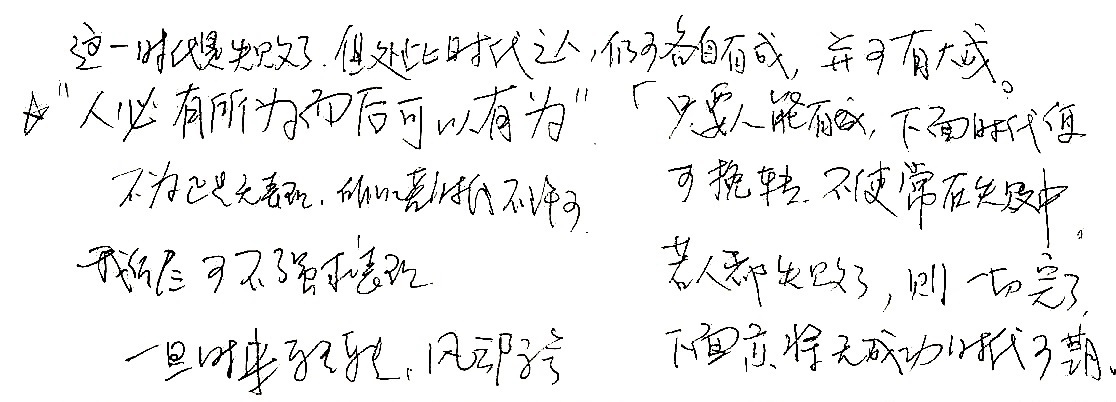 这一时代是失败了.但处此时代之人,仍可各自有成,并可有大成。
☆"人必有所为而后可以有为"
不为正是无表现.所以衰时代不许可
我们 可不强求表现
一旦时来运转,风云际会
「只要人能有成,下面时代便
可挽转.不使常在失败中。
若人都失败了,则一切完了
下面亦将无成功时代可期。